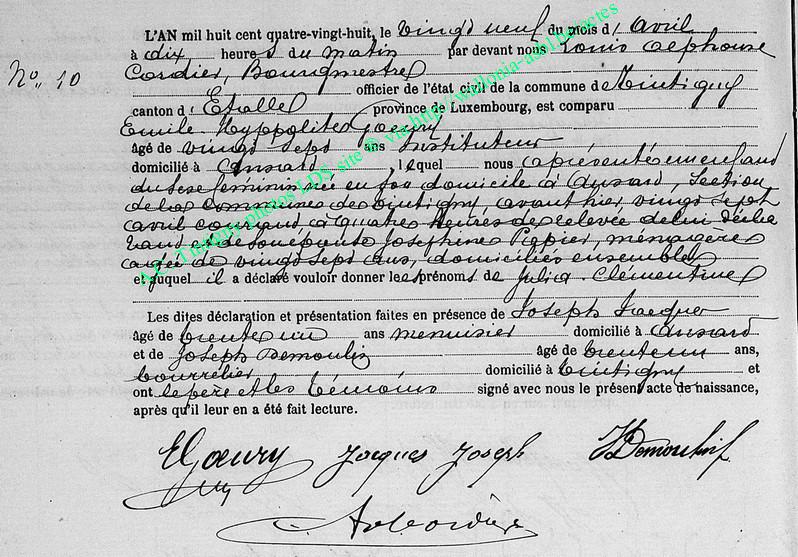 L'AN mil huit cent quatre-vingt-huit, le vingt neuf du mois d'avril
à dix heures du matin par devant nous Louis Alphonse
N° 10
Cordier, Bourgmestre
officier de l'état civil de la commune de Tintigny
canton d'Etalle province de Luxembourg, est comparu
Emile Hyppolite Goeury
âgé de vingt sept ans instituteur
domicilié à Ansart, lequel nous a présenté un enfant
du sexe féminin né en son domicile à Ansart, section
de la commune de Tintigny, avant hier vingt sept
avril courant, à quatre heures de relevée de lui décla
rant et de son épouse Josephine Papier, ménagère
agée de vingt sept ans, domiciliés ensemble
et auquel il a déclaré vouloir donner les prénoms de Julia Clémentine
Les dites déclaration et présentation faites en présence de Joseph Jacques
âgé de trente un ans menuisier domicilié à Ansard
et de Joseph Demoulin âgé de trente un ans,
bourrelier domicilié à Tintigny et
ont le père et les témoins signé avec nous le présent acte de naissance,
après qu'il leur en a été fait lecture.
EGoeury Jacques Joseph JDemoulin
A. Cordier
A.C. Tintigny photos LDS site @ via http://wallonia-asbl.be/actes